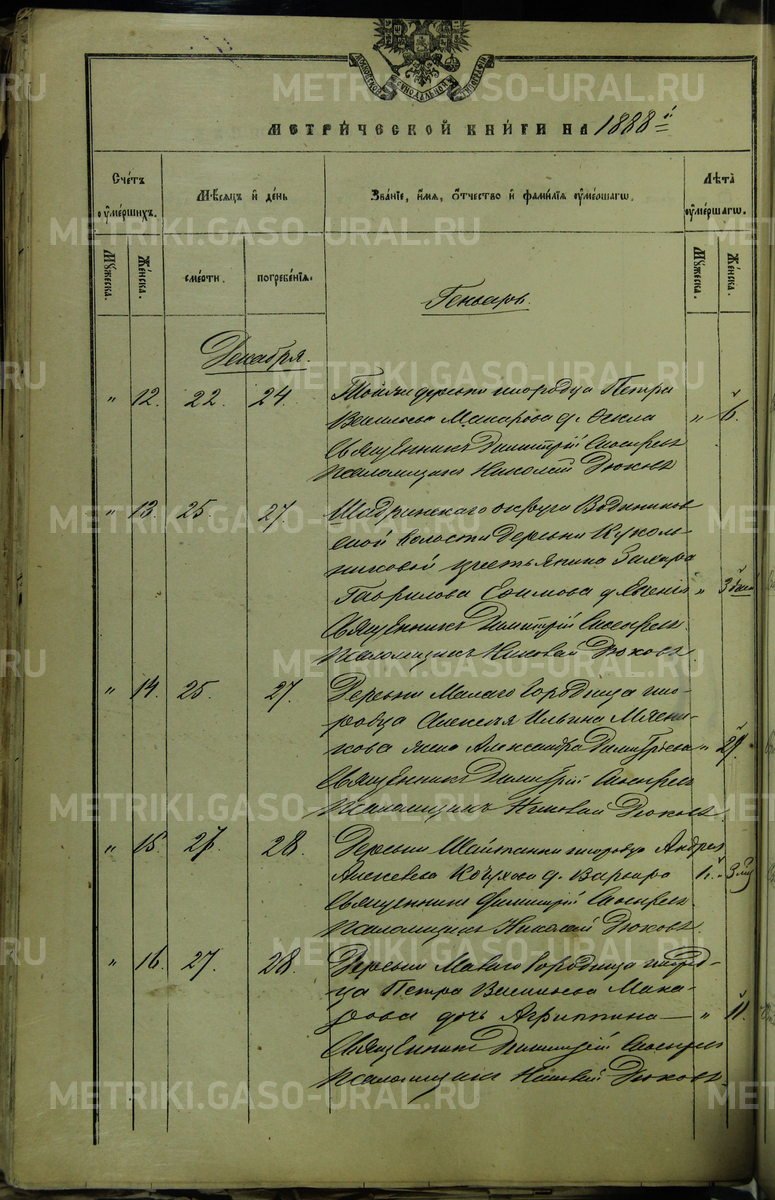 МЕТРИЧЕСКОЙ КНИГИ НА 1888 й
Счетъ умершихъ.
Мѣсяцъ и день
Званіе, имя, отчество и фамилія умершаго.
Лѣта умершаго.
Мужеска.
Женска.
смерти.
погребенія.
Мужеска.
Женска.
Генварь
Декабря.
" 12. 22. 24. деревни инородца Петра
Васильева Макарова д.
" 6.
Священникъ Димитрій
Псаломщикъ Николай Дюковъ
" 13. 25 27. Шадринскаго округа
ской волости деревни
крестьянина Захара
Гаврилова Ефимова д. Евгенія " 3 дней
Священникъ Димитрій
Псаломщикъ Николай Дюковъ
" 14. 25. 27. Деревни Малаго Городища ино-
родца Алексѣя Ильина Мясни-
кова жена Александра Димитріева " 29.
Священникъ Димитрій
Псаломщикъ Николай Дюковъ
" 15. 27. 28. Деревни инородца Андрея
Алексѣева д. Варвара
Священникъ Димитрій
Псаломщикъ Николай Дюковъ
" 16. 27. 28. Деревни Малаго Городища инород-
ца Петра Васильева Мака-
рова дочь Агриппина — " 11.
Священникъ Димитрій
Псаломщикъ Николай Дюковъ
METRIKI.GASO-URAL.RU